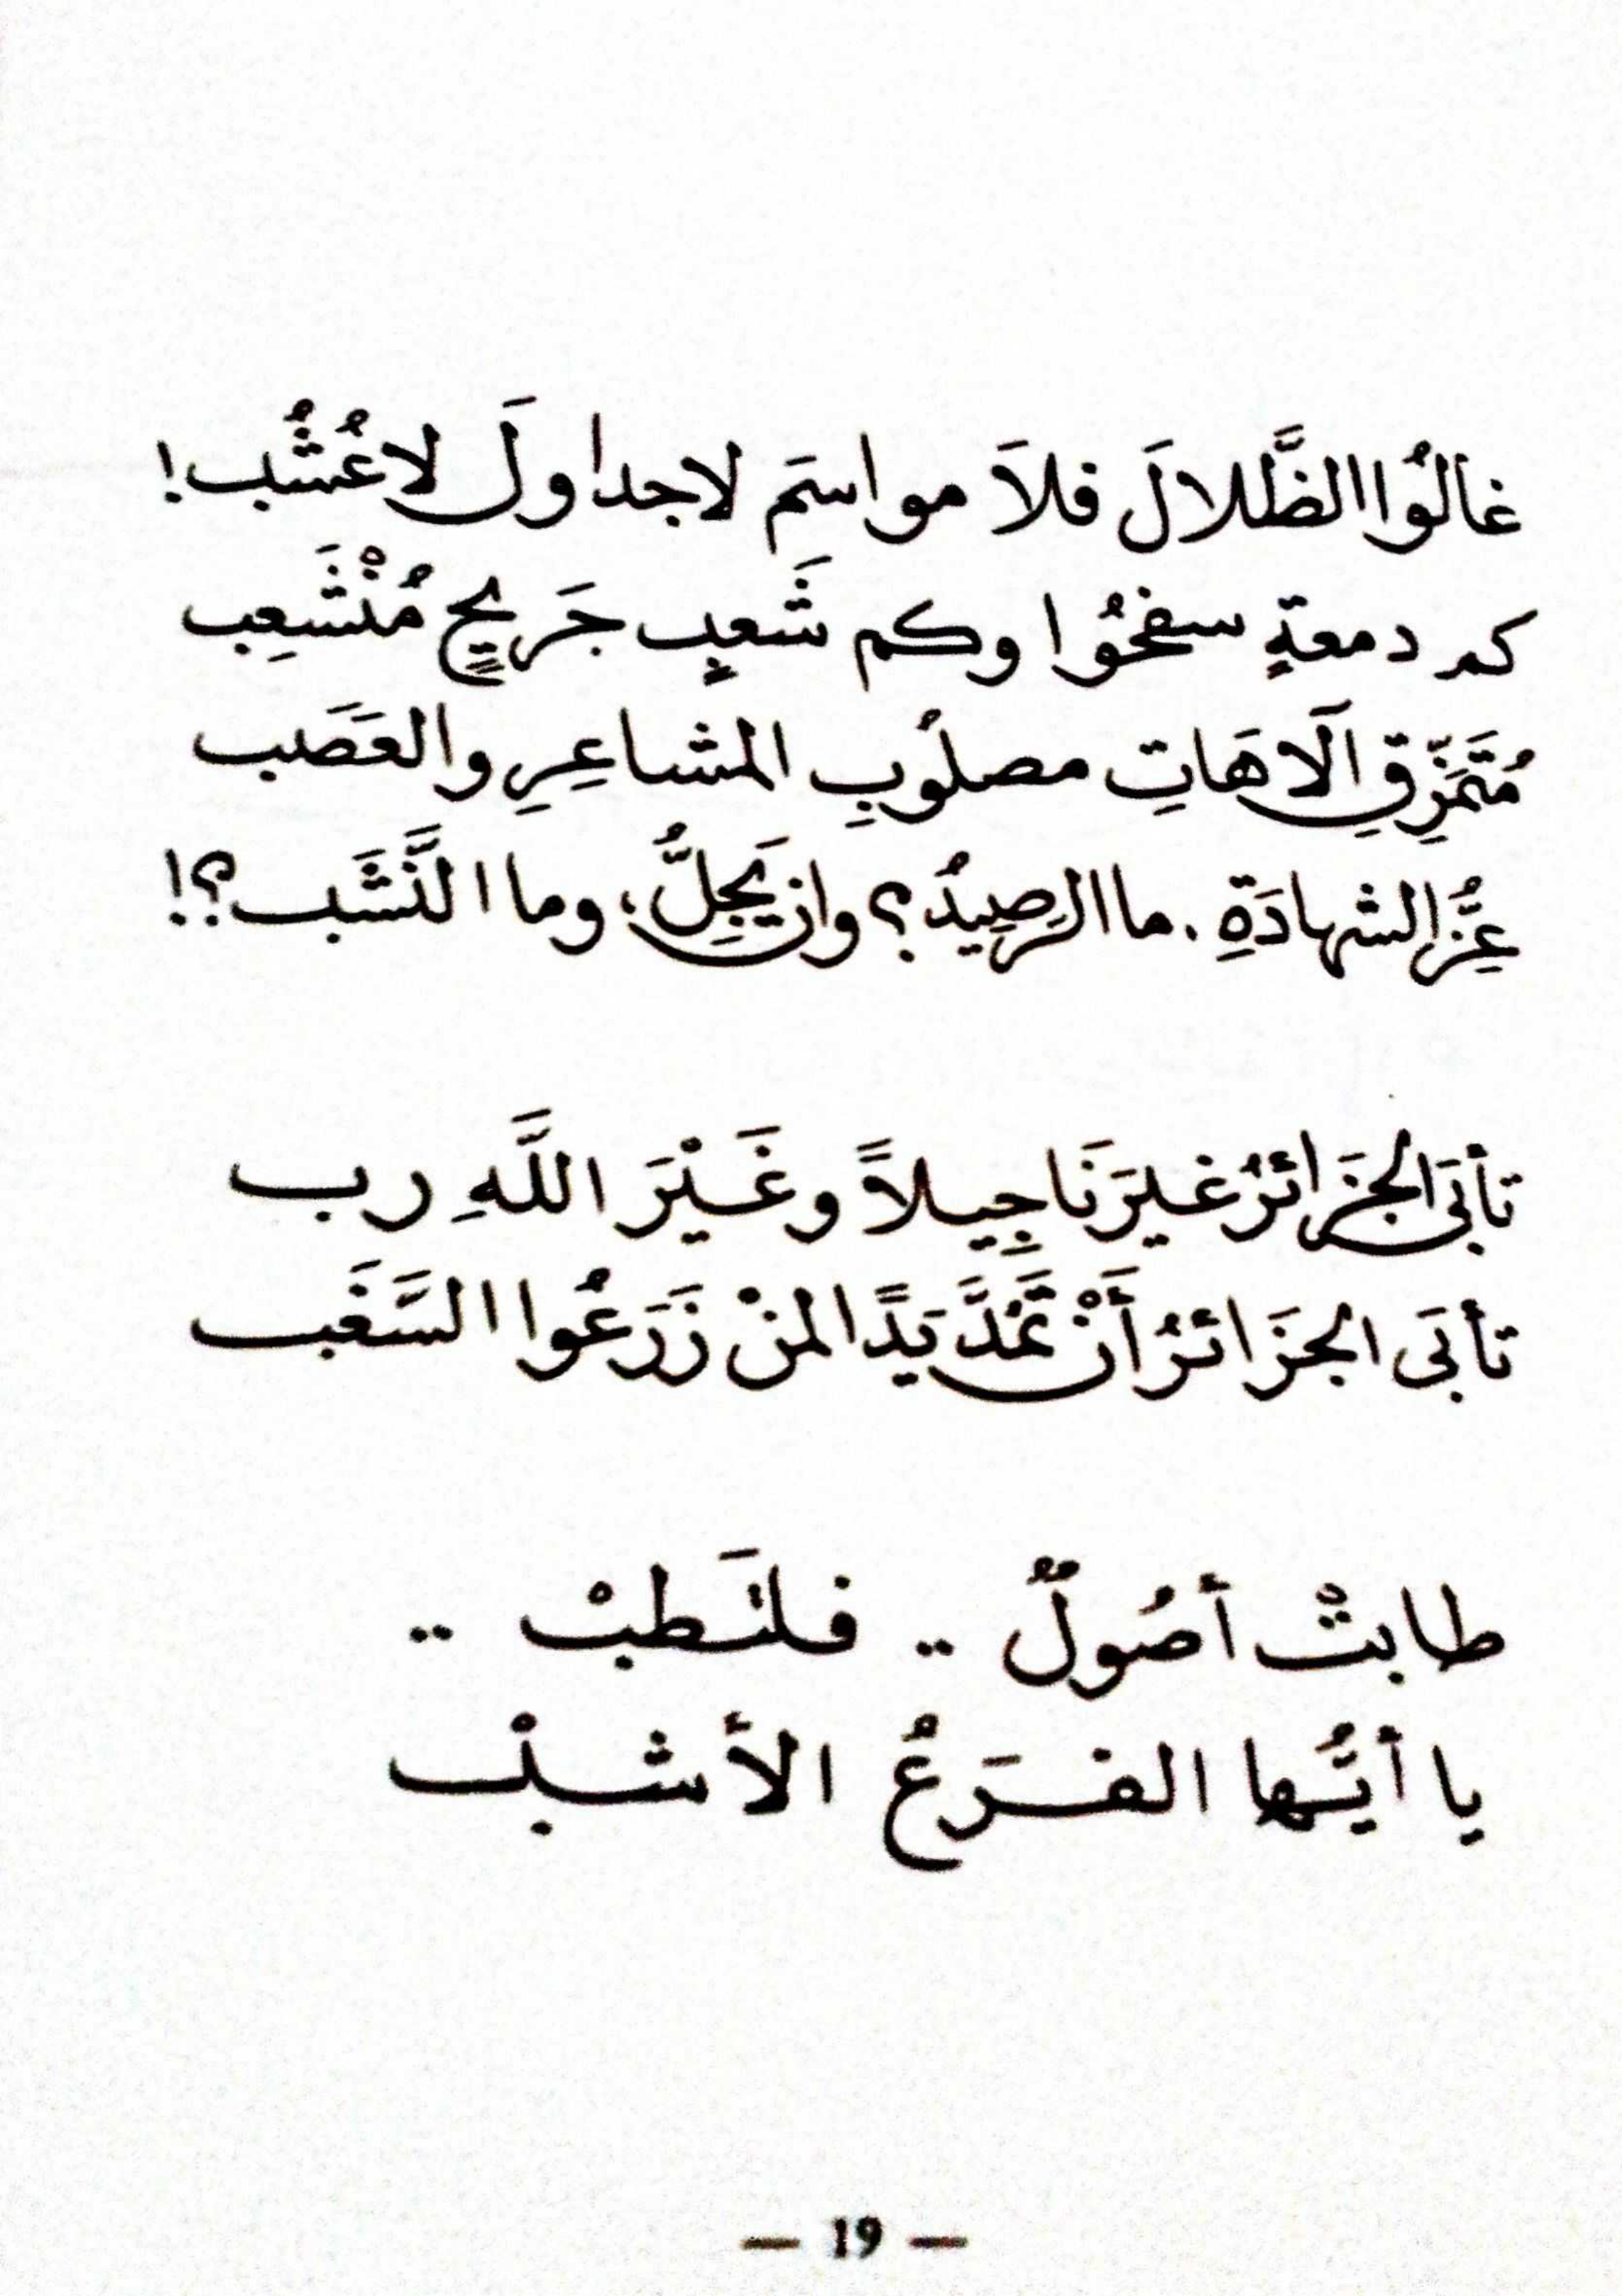 غالُوا الظَّلالَ فلاَ مواسمَ لا جداولَ لا عُشُب!
كم دمعةٍ سفحُوا وكم شَعبٍ جَريحٍ مُنْشَعِب
مُتَمَزِّقِ الآهَاتِ مصلُوبِ المشاعِرِ والعَصَب
عِزُّ الشهادَةِ . ما الرصِيدُ ؟ وان يَجِلُّ، وما النَّشَب ؟!
تأبَى الجَزَائرُ غيرَنَا جِيلاً وغَيْرَ اللَّهِ رب
تأبَى الجزَائرُ أَنْ تَمُدَّ يَدًا لمنْ زَرَعُوا السَّغَب
طابتْ أصُولٌ .. فلنَطبْ ..
يا أيُّها الفَرَعُ الأشبْ
— 19 —